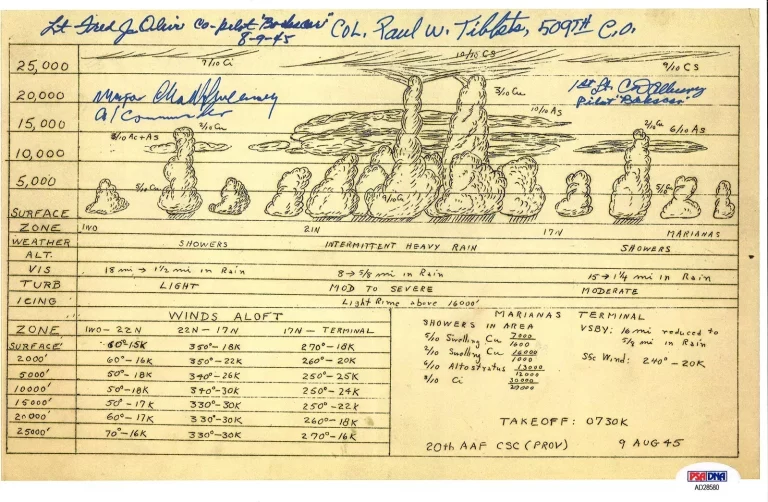 Lt Fred J Olivi Co-pilot "Bockscar" Col. Paul W. Tibbets, 509TH C.O.
8-9-45
25,000 7/10 Ci 10/10 CS 9/10 CS
20,000 3/10 Cu
Major Chas W Sweeney 1st Lt. C D Albury
A/C Commander Pilot "Bockscar"
15,000 2/10 Cu 10/10 AS 2/10 Cu 6/10 AS
3/10 Ac+As
10,000
5,000 5/10 Cu 9/10 Cu 5/10 Cu
SURFACE
ZONE IWO 21N 17N MARIANAS
WEATHER SHOWERS INTERMITTENT HEAVY RAIN SHOWERS
ALT.
VIS 18 mi → 1 1/2 mi in Rain 8 → 5/8 mi in Rain 15 → 1 1/4 mi in Rain
TURB LIGHT MOD TO SEVERE MODERATE
ICING Light Rime above 16000'
WINDS ALOFT
ZONE IWO-22N 22N-17N 17N-TERMINAL
SURFACE 60°-15K 350°-18K 270°-18K
2000' 60°-16K 350°-22K 260°-20K
5000' 50°-18K 340°-26K 250°-25K
10000' 50°-18K 340°-30K 250°-24K
15000' 50°-17K 330°-30K 250°-22K
20000' 60°-17K 330°-30K 260°-18K
25000' 70°-16K 330°-30K 270°-16K
MARIANAS TERMINAL
SHOWERS IN AREA
5/10 Swelling Cu 7000/1600
2/10 Swelling Cu 16000/1000
6/10 Altostratus 13000/12000
9/10 Ci
VSBY: 16 mi reduced to
5/8 mi in Rain
Sfc Wind: 240°-20K
TAKEOFF: 0730K
20th AAF CSC (PROV) 9 AUG 45
PSA DNA
AD28580